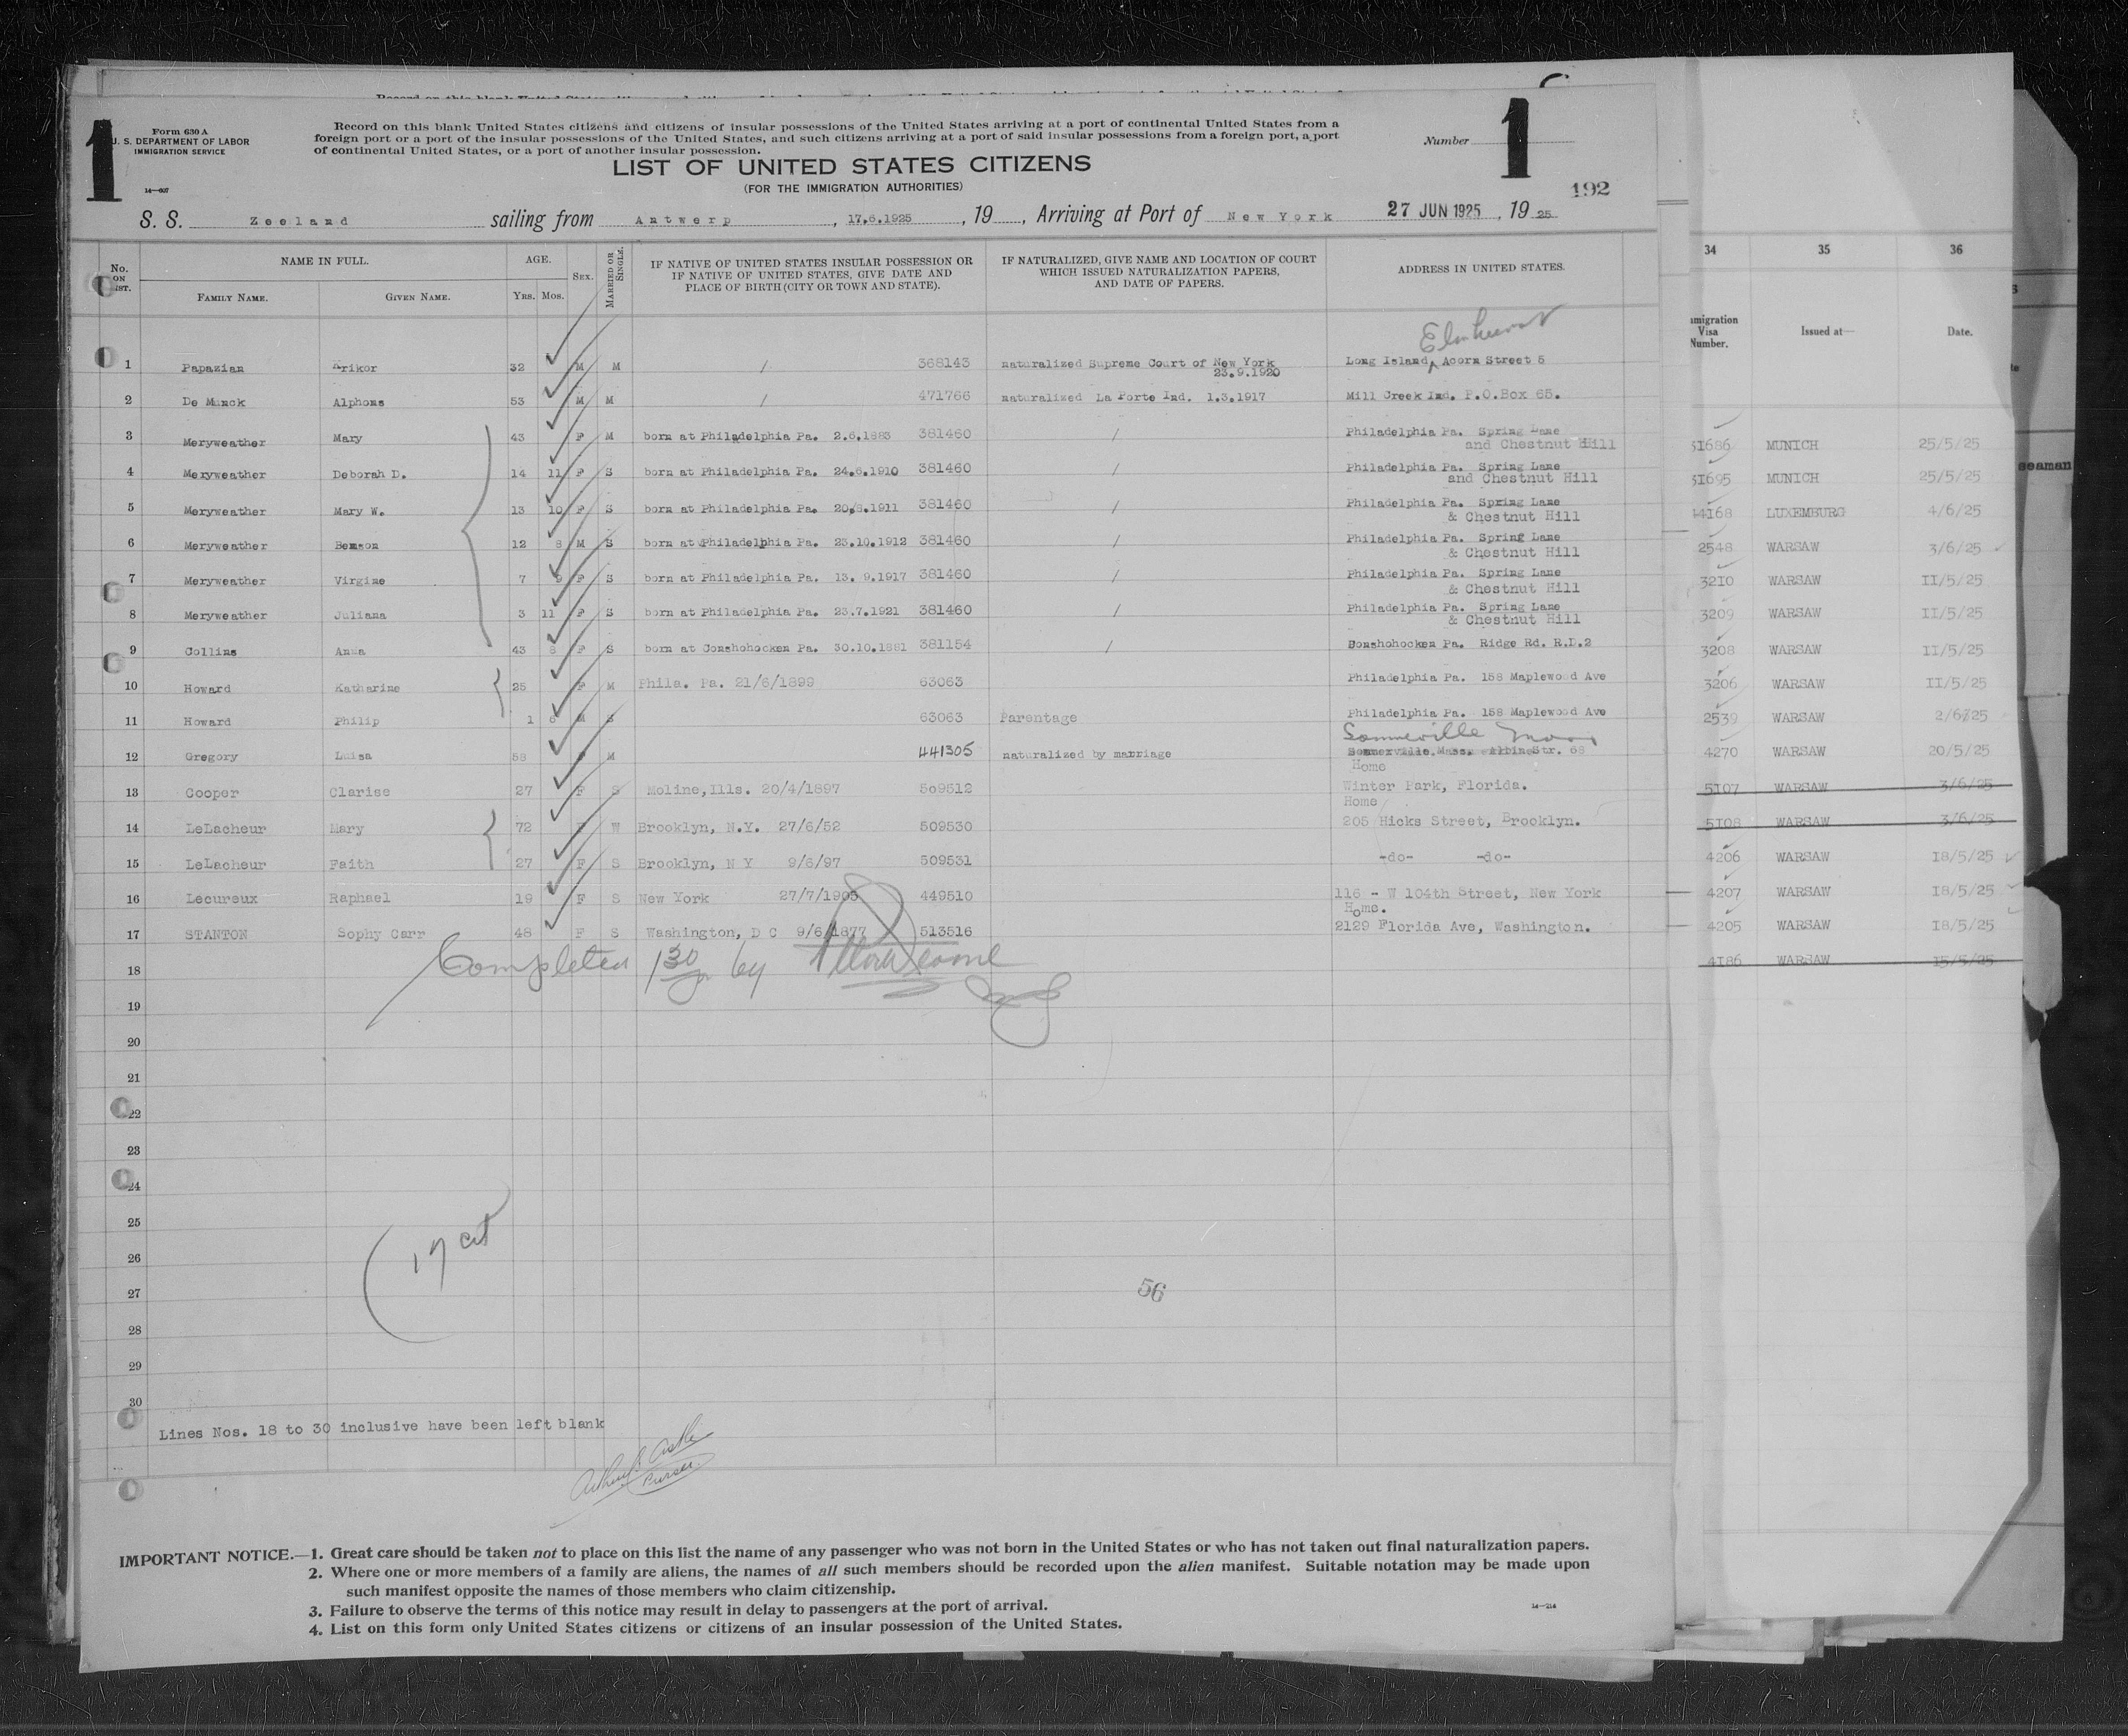 Form 630 A
U. S. DEPARTMENT OF LABOR
IMMIGRATION SERVICE
14—607
1
Record on this blank United States citizens and citizens of insular possessions of the United States arriving at a port of continental United States from a
foreign port or a port of the insular possessions of the United States, and such citizens arriving at a port of said insular possessions from a foreign port, a port
of continental United States, or a port of another insular possession.
Number 1
LIST OF UNITED STATES CITIZENS
(FOR THE IMMIGRATION AUTHORITIES)
192
S. S. Zeeland sailing from Antwerp, 17.6.1925, 19 , Arriving at Port of New York 27 JUN 1925, 19 25
No. ON LIST. NAME IN FULL. FAMILY NAME. GIVEN NAME. AGE. YRS. MOS. SEX. MARRIED OR SINGLE. IF NATIVE OF UNITED STATES INSULAR POSSESSION OR IF NATIVE OF UNITED STATES, GIVE DATE AND PLACE OF BIRTH (CITY OR TOWN AND STATE). IF NATURALIZED, GIVE NAME AND LOCATION OF COURT WHICH ISSUED NATURALIZATION PAPERS, AND DATE OF PAPERS. ADDRESS IN UNITED STATES.
Elmhurst
1 Papazian Arikor 32 M M / 368143 naturalized Supreme Court of New York 23.9.1920 Long Island, Acorn Street 5
2 De Munck Alphons 53 M M / 471766 naturalized La Porte Ind. 1.3.1917 Mill Creek Ind. P.O.Box 65.
3 Meryweather Mary 43 F M born at Philadelphia Pa. 2.6.1883 381460 / Philadelphia Pa. Spring Lane and Chestnut Hill
4 Meryweather Deborah D. 14 11 F S born at Philadelphia Pa. 24.6.1910 381460 / Philadelphia Pa. Spring Lane and Chestnut Hill
5 Meryweather Mary W. 13 10 F S born at Philadelphia Pa. 20.8.1911 381460 / Philadelphia Pa. Spring Lane & Chestnut Hill
6 Meryweather Benson 12 8 M S born at Philadelphia Pa. 23.10.1912 381460 / Philadelphia Pa. Spring Lane & Chestnut Hill
7 Meryweather Virgine 7 9 F S born at Philadelphia Pa. 13. 9.1917 381460 / Philadelphia Pa. Spring Lane & Chestnut Hill
8 Meryweather Juliana 3 11 F S born at Philadelphia Pa. 23.7.1921 381460 / Philadelphia Pa. Spring Lane & Chestnut Hill
9 Collins Anna 43 8 F S born at Conshohocken Pa. 30.10.1881 381154 / Conshohocken Pa. Ridge Rd. R.D.2
10 Howard Katharine 25 F M Phila. Pa. 21/6/1899 63063 Philadelphia Pa. 158 Maplewood Ave
11 Howard Philip 1 6 M S 63063 Parentage Philadelphia Pa. 158 Maplewood Ave
Somerville Mass
12 Gregory Luisa 58 F M 441305 naturalized by marriage Sommerville. Mass. Albine Str. 68
Home
13 Cooper Clarise 27 F S Moline, Ills. 20/4/1897 509512 Winter Park, Florida.
Home
14 LeLacheur Mary 72 F W Brooklyn, N.Y. 27/6/52 509530 205 Hicks Street, Brooklyn.
15 LeLacheur Faith 27 F S Brooklyn, N Y 9/6/97 509531 -do- -do-
16 Lecureux Raphael 19 F S New York 27/7/1905 449510 116 - W 104th Street, New York
Home.
17 STANTON Sophy Carr 48 F S Washington, D C 9/6/1877 513516 2129 Florida Ave, Washington.
Completed 130 by
18
19
20
21
22
23
24
25
26
27
28
29
30
17 cit
56
Lines Nos. 18 to 30 inclusive have been left blank
Purser
IMPORTANT NOTICE.—1. Great care should be taken not to place on this list the name of any passenger who was not born in the United States or who has not taken out final naturalization papers.
2. Where one or more members of a family are aliens, the names of all such members should be recorded upon the alien manifest. Suitable notation may be made upon
such manifest opposite the names of those members who claim citizenship.
3. Failure to observe the terms of this notice may result in delay to passengers at the port of arrival.
4. List on this form only United States citizens or citizens of an insular possession of the United States.
14—214
34 35 36
Visa Number. Issued at— Date.
31686 MUNICH 25/5/25
31695 MUNICH 25/5/25
14168 LUXEMBURG 4/6/25
2548 WARSAW 3/6/25
3210 WARSAW II/5/25
3209 WARSAW II/5/25
3208 WARSAW II/5/25
3206 WARSAW II/5/25
2539 WARSAW 2/6/25
4270 WARSAW 20/5/25
5107 WARSAW 3/6/25
5108 WARSAW 3/6/25
4206 WARSAW 18/5/25
4207 WARSAW 18/5/25
4205 WARSAW 18/5/25
4186 WARSAW 15/5/25
seaman